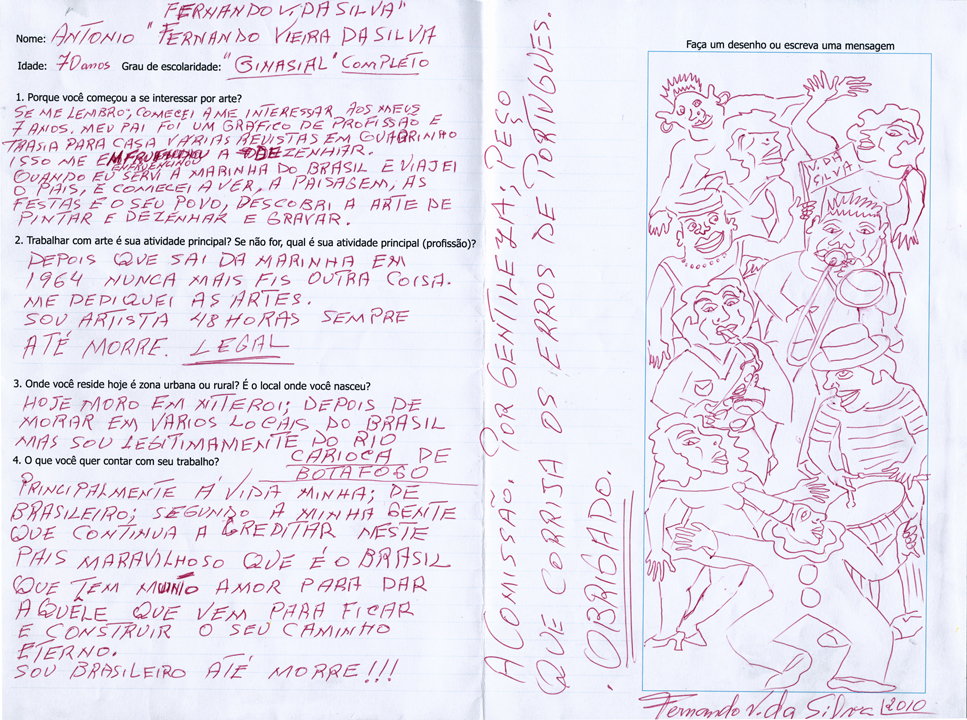 FERNANDO V. DA SILVA"
Nome: ANTONIO "FERNANDO VIEIRA DA SILVA
Idade: 70 anos Grau de escolaridade: "GINASIAL" COMPLETO
1. Porque você começou a se interessar por arte?
SE ME LEMBRO; COMECEI A ME INTERESSAR AOS MEUS
7 ANOS. MEU PAI FOI UM GRÁFICO DE PROFISSÃO E
TRASIA PARA CASA VÁRIAS REVISTAS EM QUADRINHO
ISSO ME A DEZENHAR.
QUANDO EU SERVI A MARINHA DO BRASIL E VIAJEI
O PAIS, E COMECEI A VER, A PAISAGEM, AS
FESTAS E O SEU POVO, DESCOBRI A ARTE DE
PINTAR E DEZENHAR E GRAVAR.
2. Trabalhar com arte é sua atividade principal? Se não for, qual é sua atividade principal (profissão)?
DEPOIS QUE SAI DA MARINHA EM
1964 NUNCA MAIS FIS OUTRA COISA.
ME DEDIQUEI AS ARTES.
SOU ARTISTA 48 HORAS SEMPRE
ATÉ MORRE. LEGAL
3. Onde você reside hoje é zona urbana ou rural? É o local onde você nasceu?
HOJE MORO EM NITEROI; DEPOIS DE
MORAR EM VÁRIOS LOCAIS DO BRASIL
MAS SOU LEGITIMAMENTE DO RIO
CARIOCA DE
BOTAFOGO
4. O que você quer contar com seu trabalho?
PRINCIPALMENTE A VIDA MINHA; DE
BRASILEIRO; SEGUNDO A MINHA GENTE
QUE CONTINUA A CREDITAR NESTE
PAIS MARAVILHOSO QUE É O BRASIL
QUE TEM MUITO AMOR PARA DAR
AQUÊLE QUE VEM PARA FICAR
E CONSTRUIR O SEU CAMINHO
ETERNO.
SOU BRASILEIRO ATÉ MORRE!!!
A COMISSÃO. POR GENTILEZA; PEÇO
QUE CORRIJA OS ERROS DE PORTINGUÊS.
OBRIGADO.
Faça um desenho ou escreva uma mensagem
V. DA
SILVA
Fernando V. da Silva 2010